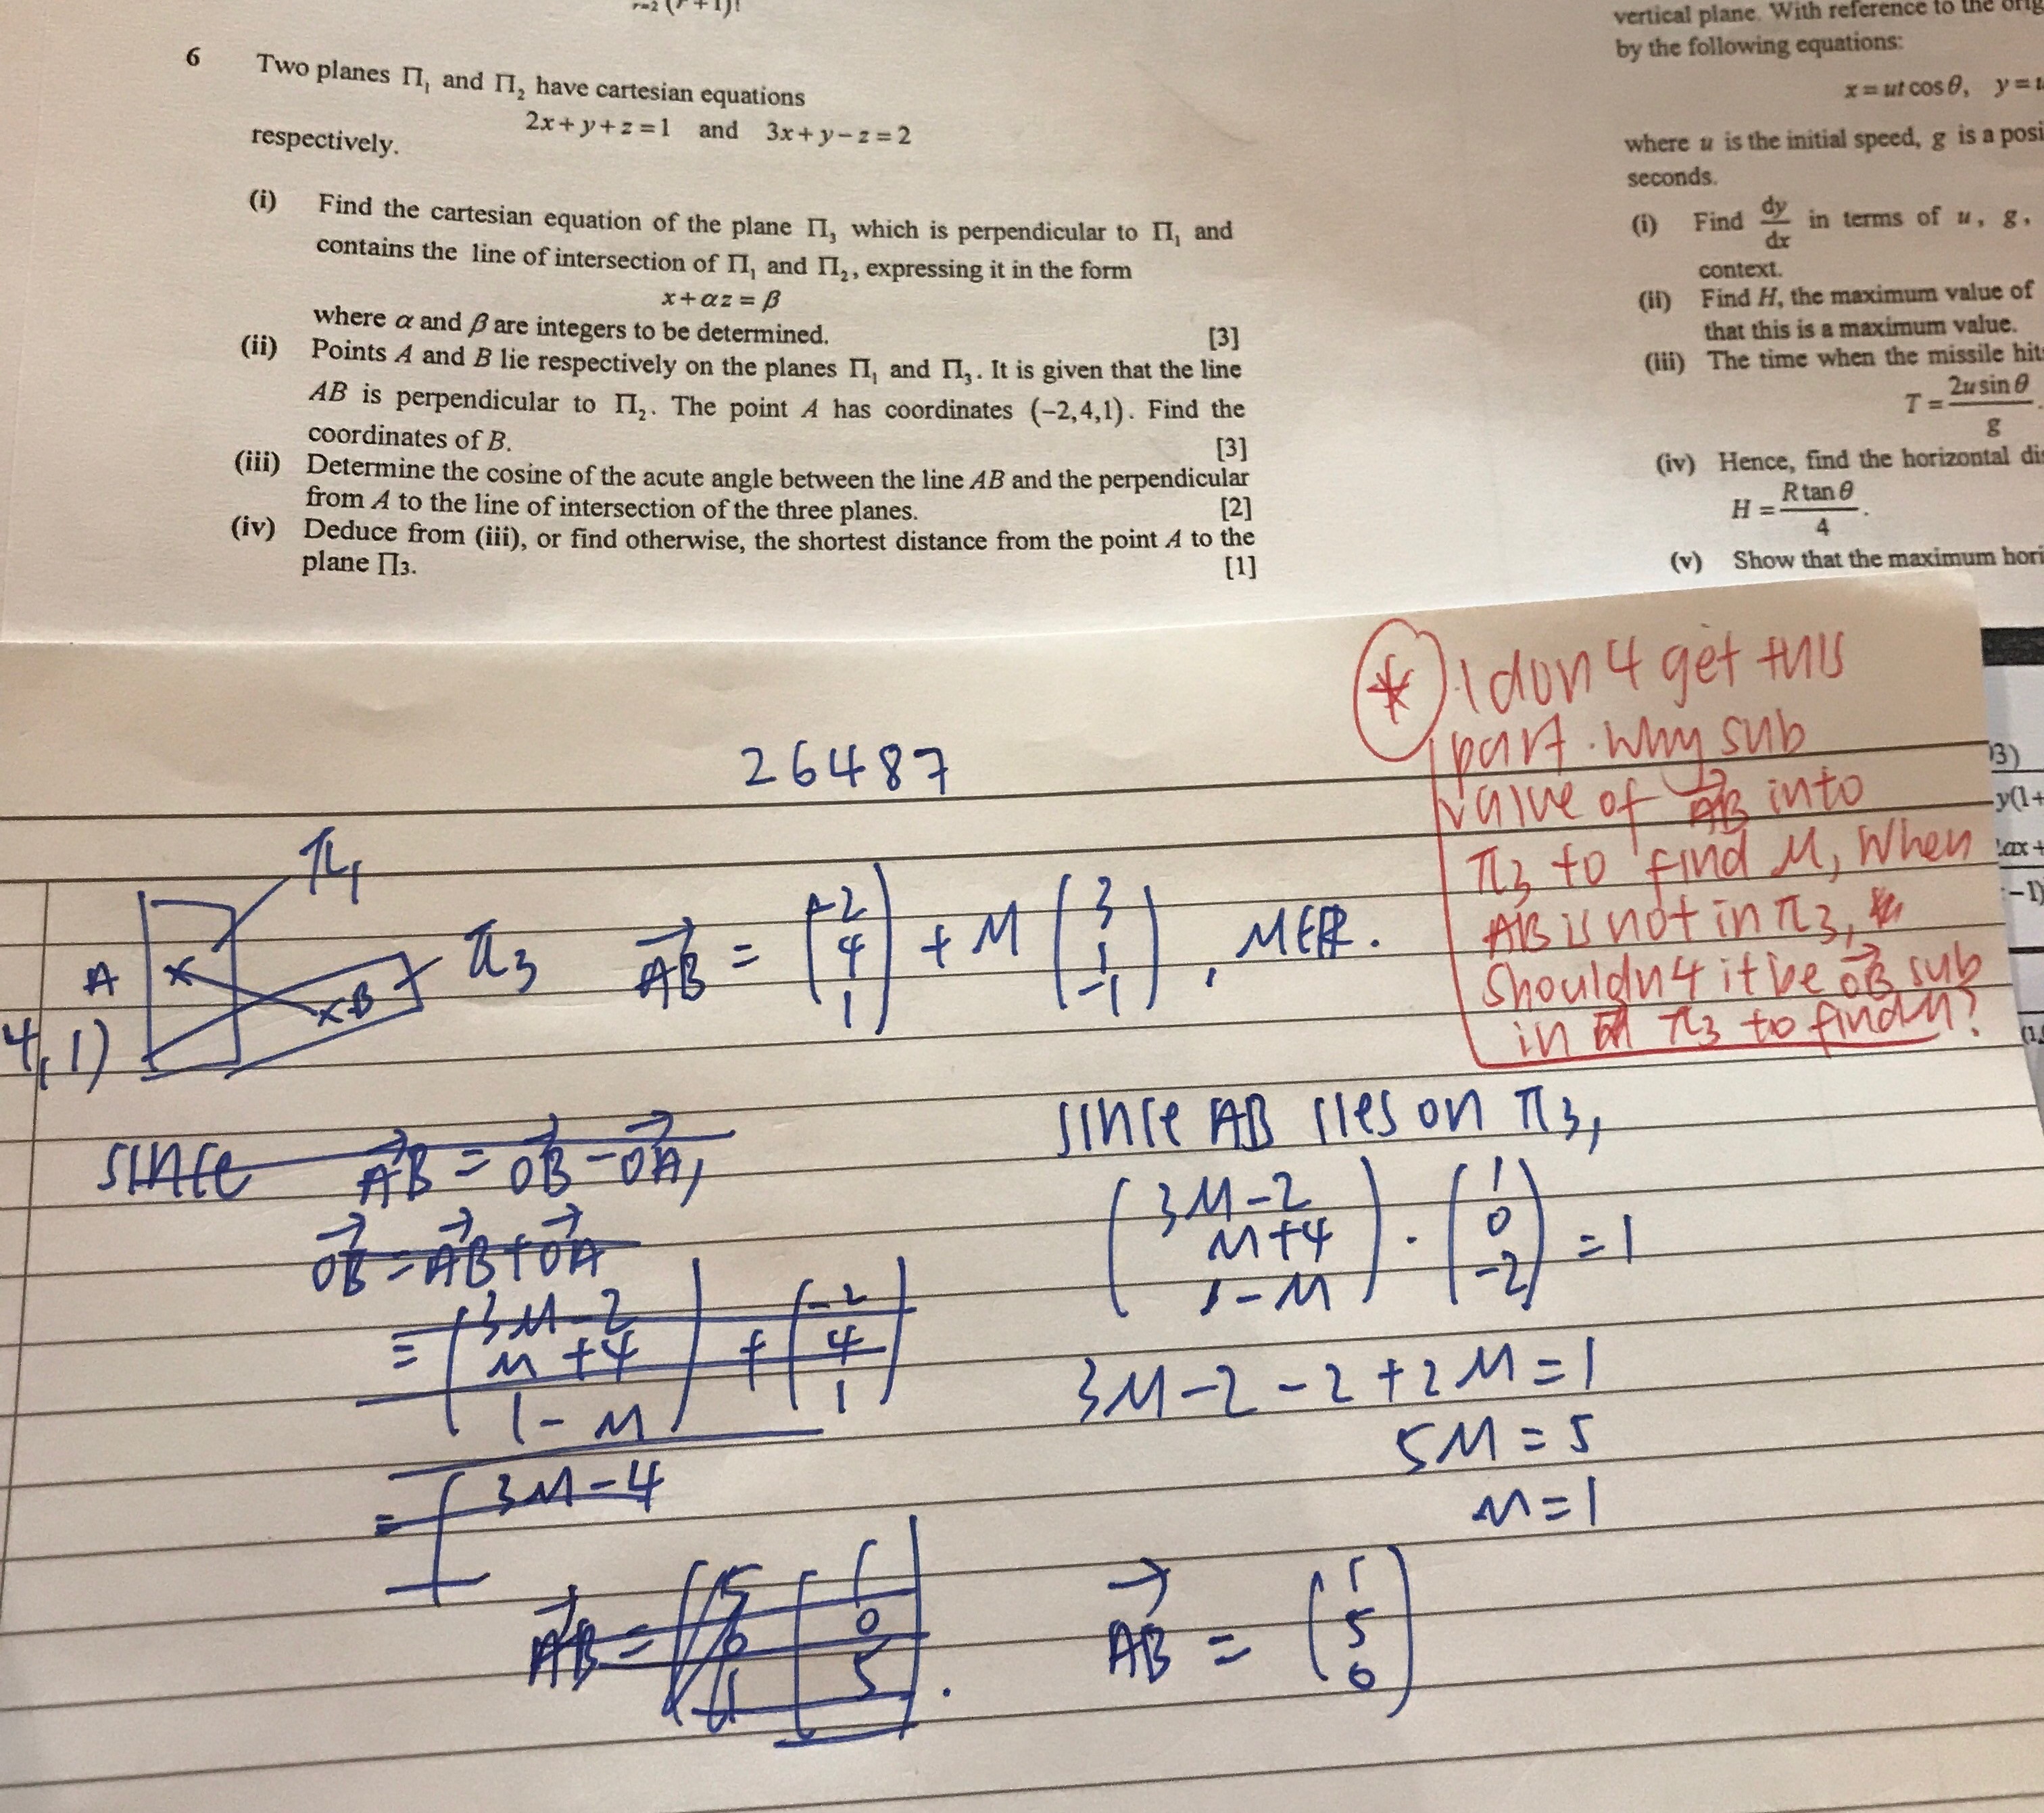 r=2 (r+1)!
6 Two planes Π₁ and Π₂ have cartesian equations
2x+y+z=1 and 3x+y−z=2
respectively.
(i) Find the cartesian equation of the plane Π₃ which is perpendicular to Π₁ and
contains the line of intersection of Π₁ and Π₂, expressing it in the form
x+αz=β
where α and β are integers to be determined. [3]
(ii) Points A and B lie respectively on the planes Π₁ and Π₃. It is given that the line
AB is perpendicular to Π₂. The point A has coordinates (−2,4,1). Find the
coordinates of B. [3]
(iii) Determine the cosine of the acute angle between the line AB and the perpendicular
from A to the line of intersection of the three planes. [2]
(iv) Deduce from (iii), or find otherwise, the shortest distance from the point A to the
plane Π3. [1]
vertical plane. With reference to the orig
by the following equations:
x=ut cosθ, y=u
where u is the initial speed, g is a posi
seconds.
(i) Find dy/dx in terms of u, g,
context.
(ii) Find H, the maximum value of
that this is a maximum value.
(iii) The time when the missile hit
T=2u sinθ/g.
(iv) Hence, find the horizontal di
H=R tanθ/4.
(v) Show that the maximum hori
* I don4 get this
part. Why sub
value of AB→ into
π3 to find M, when
AB is not in π3,
shouldn4 it be OB→ sub
in π3 to find M?
26487
π1
A x
xB
π3
4,1)
AB→ = (-2 4 1) + M (3 1 -1), MER.
since AB→ = OB→ - OA→,
OB→ = AB→ + OA→
= (3M-2 M+4 1-M) + (-2 4 1)
= (3M-4
AB→ = (1 0 5).
since AB lies on π3,
(3M-2 M+4 1-M) · (1 0 -2) = 1
3M-2-2+2M=1
5M=5
M=1
AB→ = (1 5 0)
3)
y(1+
ax+
-1)